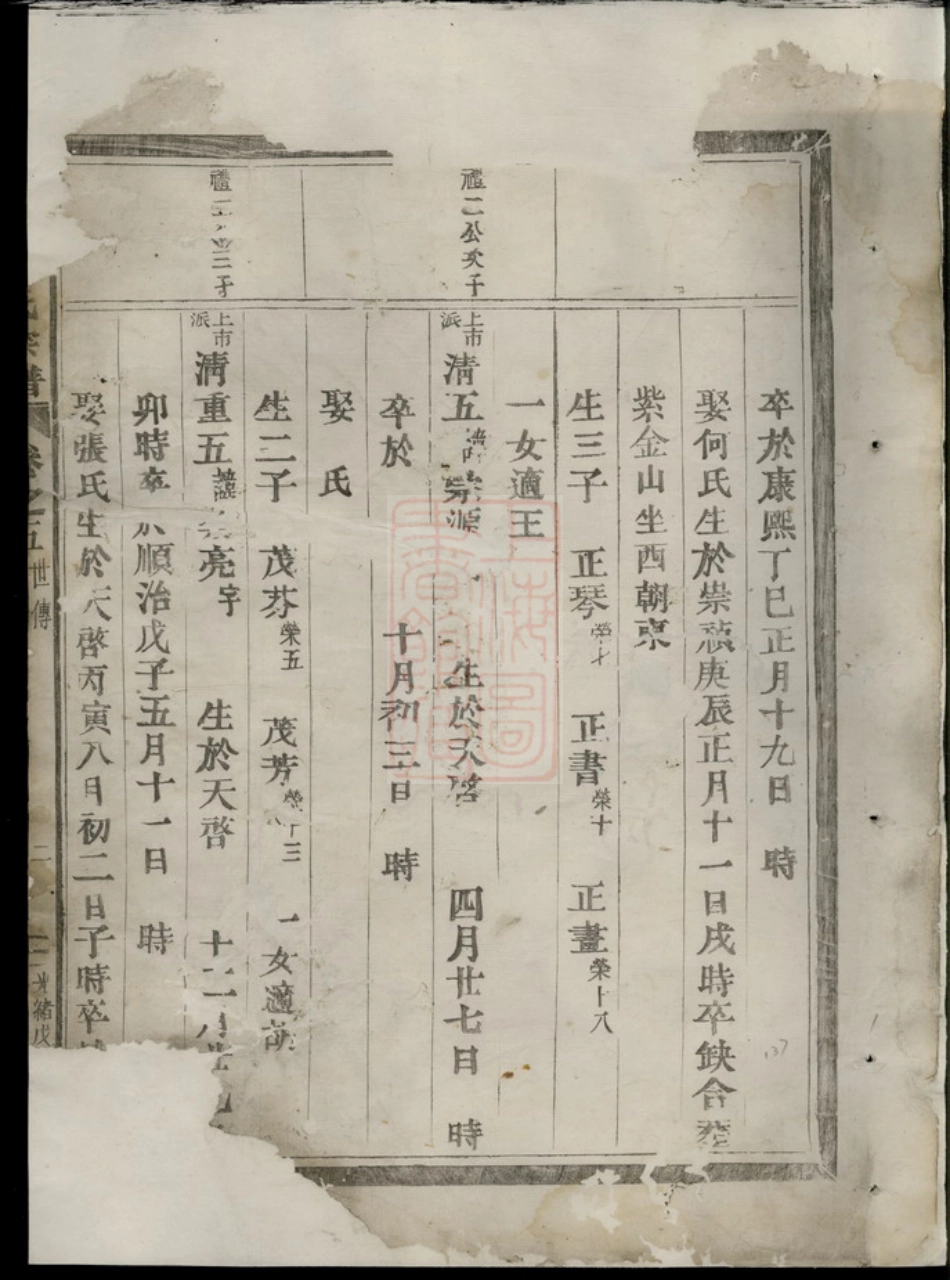 卒於康熙丁巳正月十九日 時
娶何氏生於崇禎庚辰正月十一日戌時卒缺合塟
紫金山坐西朝東
生三子 正琴榮 正書榮十 正畫榮十八
一女適王
禮二公次子
上市派清五諱崇源 生於天啓 四月廿七日 時
卒於 十月初三日 時
娶 氏
生二子 茂芬榮五 茂芳榮十三 一女適胡
禮二公三子
上市派清重五諱 亮字 生於天啓 十二月
卯時卒於順治戊子五月十一日 時
娶張氏生於天啓丙寅八月初二日子時卒
宗譜 卷之五 世傳 光緒戊